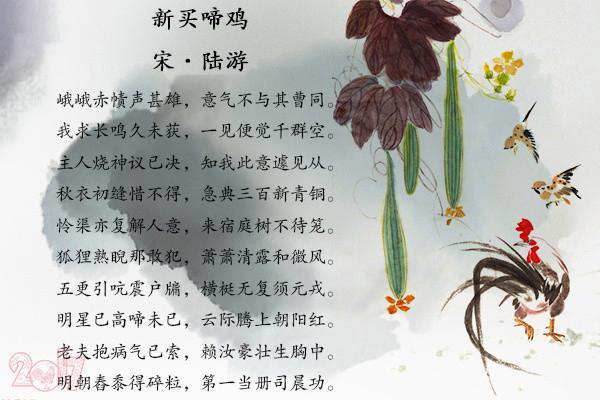 新买啼鸡
宋·陆游
峨峨赤帻声甚雄，意气不与其曹同。
我求长鸣久未获，一见便觉千群空。
主人烧神议已决，知我此意遽见从。
秋衣初缝惜不得，急典三百新青铜。
怜渠亦复解人意，来宿庭树不待笼。
狐狸熟睨那敢犯，萧萧清露和微风。
五更引吭震户牖，横梃无复须元戎。
明星已高啼未已，云际腾上朝阳红。
老夫抱病气已索，赖汝豪壮生胸中。
明朝舂黍得碎粒，第一当册司晨功。
2017